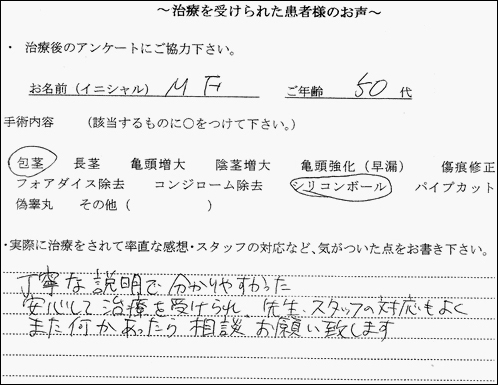 ～治療を受けられた患者様のお声～
・ 治療後のアンケートにご協力下さい。
お名前（イニシャル） M F ご年齢 50 代
手術内容 （該当するものに○をつけて下さい。）
包茎 長茎 亀頭増大 陰茎増大 亀頭強化（早漏） 傷痕修正
フォアダイス除去 コンジローム除去 シリコンボール パイプカット
偽睾丸 その他（ ）
・実際に治療をされて率直な感想・スタッフの対応など、気がついた点をお書き下さい。
丁寧な説明で分かりやすかった
安心して治療を受けられ、先生、スタッフの対応もよく
また何かあったら相談お願い致します